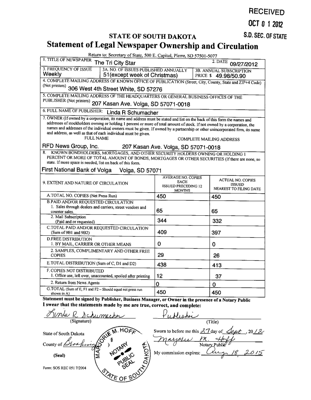 RECEIVED
OCT 01 2012
S.D. SEC. OF STATE
STATE OF SOUTH DAKOTA
Statement of Legal Newspaper Ownership and Circulation
Return to: Secretary of State, 500 E. Capitol, Pierre, SD 57501-5077
1. TITLE OF NEWSPAPER The Tri City Star 2. DATE 09/27/2012
3. FREQUENCY OF ISSUE Weekly
3A. NO. OF ISSUES PUBLISHED ANNUALLY 51(except week of Christmas)
3B. ANNUAL SUBSCRIPTION PRICE $ 49.98/50.90
4. COMPLETE MAILING ADDRESS OF KNOWN OFFICE OF PUBLICATION (Street, City, County, State and ZIP+4 Code)
(Not printers) 306 West 4th Street White, SD 57276
5. COMPLETE MAILING ADDRESS OF THE HEADQUARTERS OR GENERAL BUSINESS OFFICES OF THE
PUBLISHER (Not printer) 207 Kasan Ave. Volga, SD 57071-0018
6. FULL NAME OF PUBLISHER: Linda R Schumacher
7. OWNER (If owned by a corporation, its name and address must be stated and list on the back of this form the names and
addresses of stockholders owning or holding 1 percent or more of total amount of stock. If not owned by a corporation, the
names and addresses of the individual owners must be given. If owned by a partnership or other unincorporated firm, its name
and address, as well as that of each individual must be given.
FULL NAME COMPLETE MAILING ADDRESS
RFD News Group, Inc. 207 Kasan Ave. Volga, SD 57071-0018
8. KNOWN BONDHOLDERS, MORTGAGEES, AND OTHER SECURITY HOLDERS OWNING OR HOLDING 1
PERCENT OR MORE OF TOTAL AMOUNT OF BONDS, MORTGAGES OR OTHER SECURITIES (If there are none, so
state. If more space is needed, list on back of this form.
First National Bank of Volga Volga, SD 57071
9. EXTENT AND NATURE OF CIRCULATION
AVERAGE NO. COPIES EACH ISSUED PRECEDING 12 MONTHS
ACTUAL NO. COPIES ISSUED NEAREST TO FILING DATE
A. TOTAL NO. COPIES (Net Press Run) 450 450
B. PAID AND/OR REQUESTED CIRCULATION
1. Sales through dealers and carriers, street vendors and
counter sales. 65 65
2. Mail Subscription
(Paid and or requested) 344 332
C. TOTAL PAID AND/OR REQUESTED CIRCULATION
(Sum of 9B1 and 9B2) 409 397
D. FREE DISTRIBUTION
1. BY MAIL, CARRIER OR OTHER MEANS 0 0
2. SAMPLES, COMPLIMENTARY AND OTHER FREE
COPIES 29 26
E. TOTAL DISTRIBUTION (Sum of C, D1 and D2) 438 413
F. COPIES NOT DISTRIBUTED
1. Office use, left over, unaccounted, spoiled after printing 12 37
2. Return from News Agents 0 0
G. TOTAL (Sum of E, F1 and F2 - Should equal net press run
shown in A.) 450 450
Statement must be signed by Publisher, Business Manager, or Owner in the presence of a Notary Public
I swear that the statements made by me are true, correct, and complete:
Linda R Schumacher Publisher
(Signature) (Title)
State of South Dakota
Sworn to before me this 27 day of Sept, 2012.
County of Brookings
Marjorie M. Hoff
Notary Public
(Seal)
My commission expires: Aug 18, 2015
MARJORIE M. HOFF
NOTARY PUBLIC
SEAL
STATE OF SOUTH DAKOTA